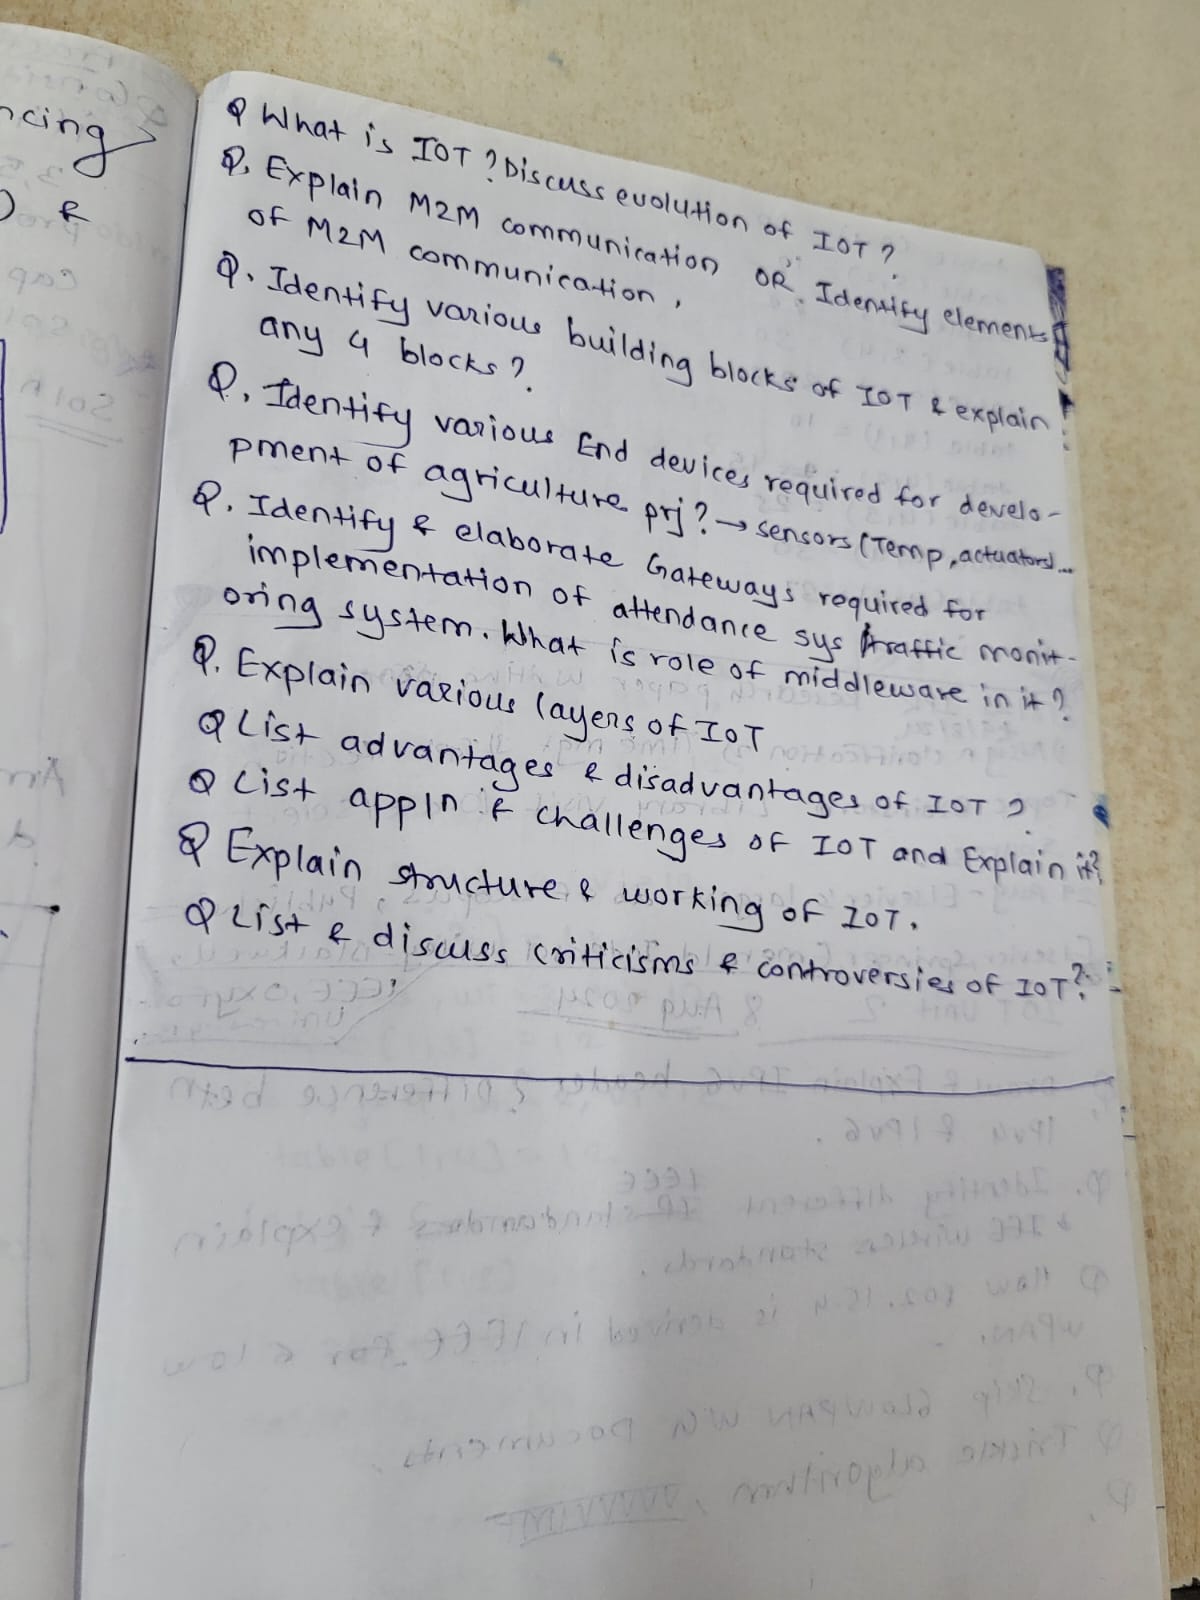 ncing
) &
Q What is IOT ? Discuss evolution of IOT ?
Q. Explain M2M communication OR Identify elements
of M2M communication.
Q. Identify various building blocks of IOT & explain
any 4 blocks ?
Q. Identify various End devices required for develo-
pment of agriculture prj ? → sensors (Temp, actuators)...
Q. Identify & elaborate Gateways required for
implementation of attendance sys traffic monit-
oring system. What is role of middleware in it ?
Q. Explain various layers of IOT
Q List advantages & disadvantages of IOT ?
Q List appln & challenges of IOT and Explain it?
Q Explain structure & working of IOT.
Q List & discuss criticisms & controversies of IOT?